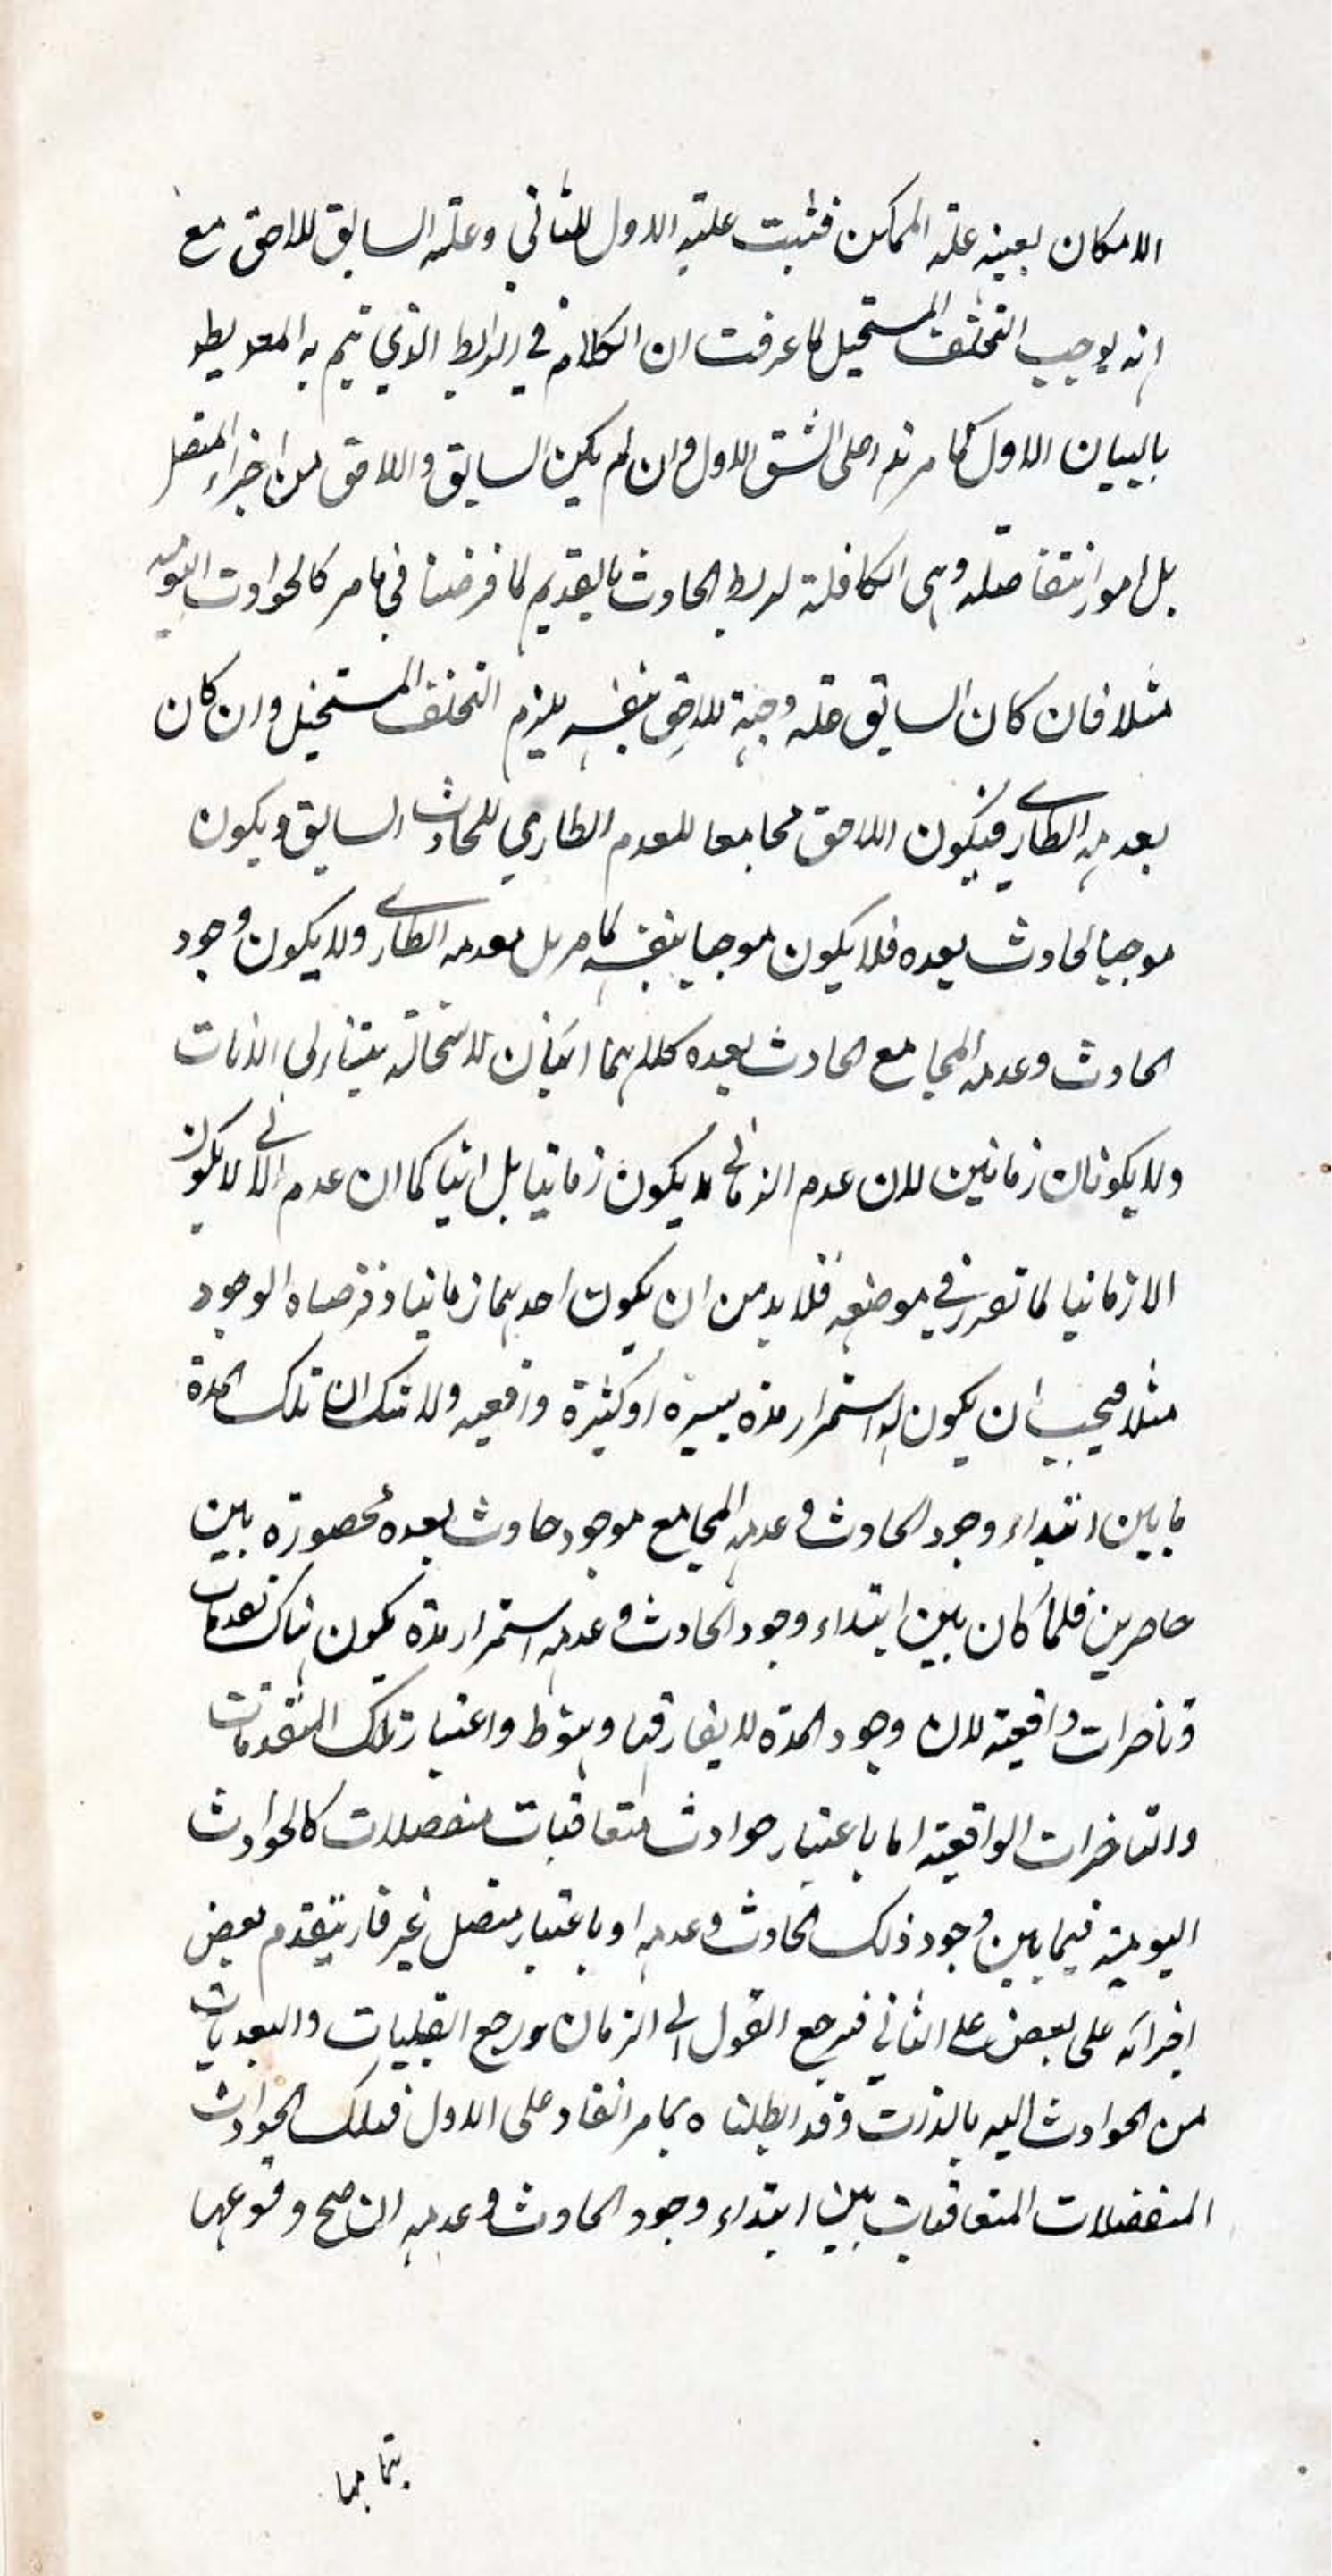 الامكان بعينه علة الممكن فثبت علية الاول للثاني وعلية السابق لللاحق مع
انه يوجب التخلف المستحيل لما عرفت ان الكلام في الرابط الذي تيم به
بالبيان الاول كما مر على الشق الاول وان لم يكن السابق واللاحق من اجزاء المتصل
بل امور متفاصلة وهي الكافلة لربط الحادث بالقديم لما فرضنا في ما مر كالحوادث اليومية
مثلا فان كان السابق علة موجبة لللاحق بنفسه يلزم التخلف المستحيل وان كان
بعدمه الطاري فيكون اللاحق مجامعا للعدم الطاري للحادث السابق ويكون
موجبا لحادث بعده فلا يكون موجبا بنفسه كما مر بل بعدمه الطاري ولا يكون وجود
الحادث وعدمه المجامع الحادث بعده كلاهما انيان لاستحالة تتالى الانات
ولا يكونان زمانين لان عدم الزماني لا يكون زمانيا بل انيا كما ان عدم الاني لا يكون
الا زمانيا لما تقرر في موضعه فلا بد من ان يكون احدهما زمانيا وفرضناه الوجود
مثلا فيجب ان يكون له استمرار مدة يسيرة او كثيرة واقعية ولا شك ان تلك المدة
ما بين ابتداء وجود الحادث وعدمه المجامع موجود حادث بعده محصورة بين
حاصرين فلما كان بين ابتداء وجود الحادث وعدمه استمرار مدة يكون هناك تقدمات
وتاخرات واقعية لان وجود المدة لا يفارقها واعتبار تلك التقدمات
والتاخرات الواقعية اما باعتبار حوادث متعاقبات منفصلات كالحوادث
اليومية فيما بين وجود ذلك الحادث وعدمه او باعتبار متصل غير قار يتقدم بعض
اجزائه على بعض على الثاني فيرجع القول الى الزمان ويرجع القبليات والبعديات
من الحوادث اليه بالذات وقد ابطلناه بما مر انفا وعلى الاول فتلك الحوادث
المنفصلات المتعاقبات بين ابتداء وجود الحادث وعدمه ان صح وقوعها
بتمامها